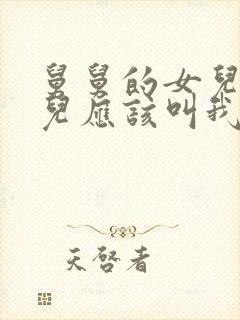 舅舅的女兒
兒應該叫我
天啓者